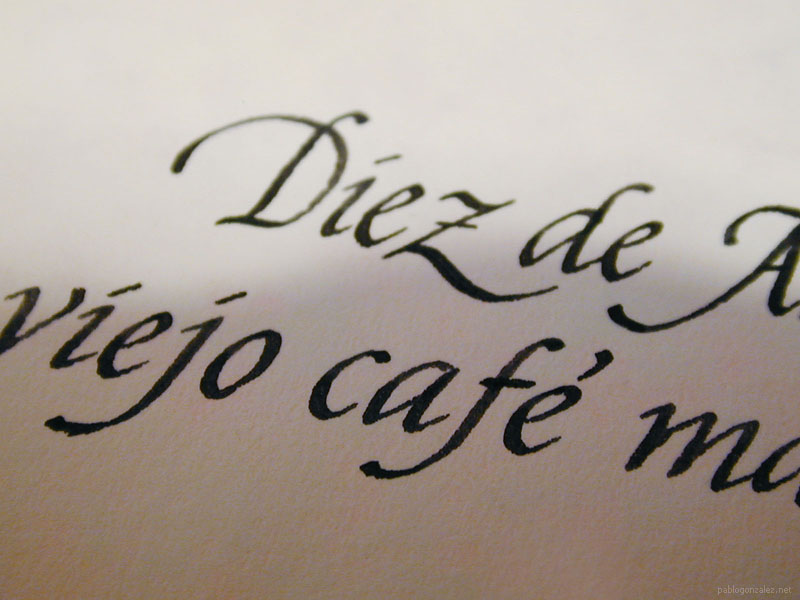 Diez de A
viejo café ma
pablogonzalez.net